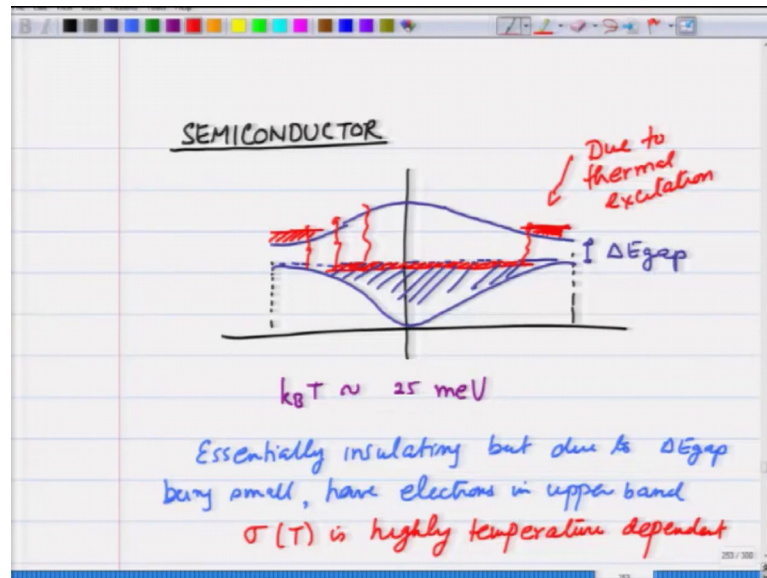 SEMICONDUCTOR
Due to
thermal
excitation
ΔEgap
kBT ~ 25 meV
Essentially insulating but due to ΔEgap
being small, have electrons in upper band
σ(T) is highly temperature dependent
253 / 300